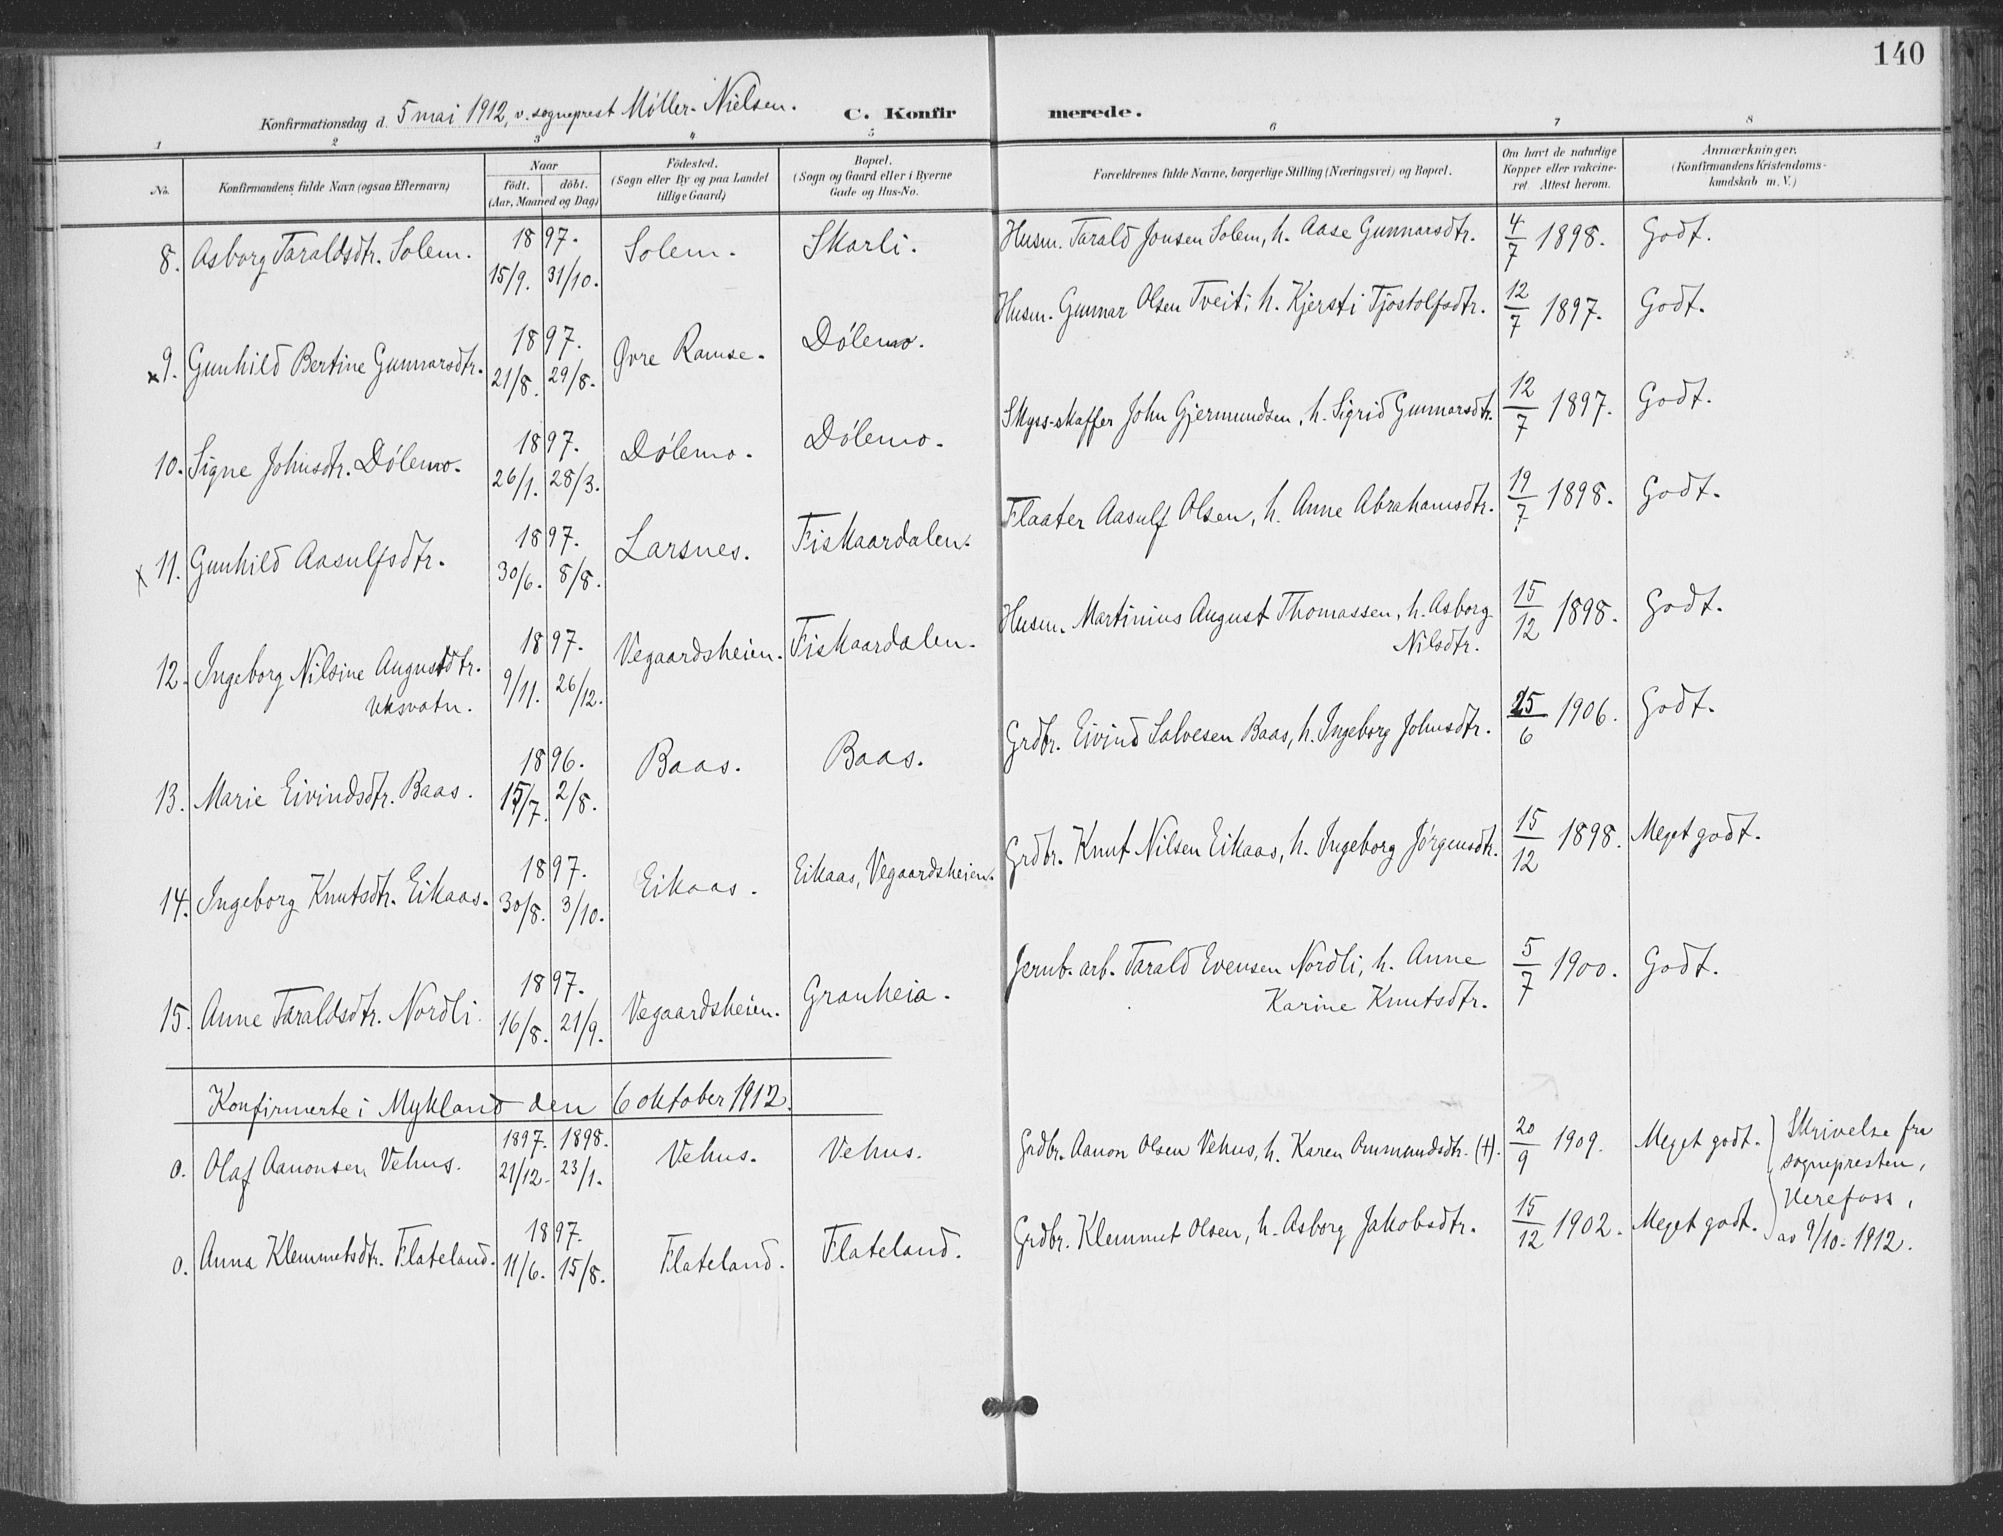 140
Konfirmationsdag d. 5 mai 1912, v. sogneprest Møller-Nielsen. C. Konfirmerede.
1 2 3 4 5 6 7 8
No. Konfirmandens fulde Navn (ogsaa Efternavn) Naar født. døbt. (Aar, Maaned og Dag) Födested. (Sogn eller By og paa Landet tillige Gaard) Bopæl. (Sogn og Gaard eller i Byerne Gade og Hus-No. Forældrenes fulde Navne, borgerlige Stilling (Næringsvei) og Bopæl. Om havt de naturlige Kopper eller vakcineret Attest herom. Anmærkninger. (Konfirmandens Kristendomskundskab m. V.)
8. Asborg Taraldsdtr. Solem. 1897. 15/9. 31/10. Solem. Skarli. Husm. Tarald Jonsen Solem, h. Aase Gunnarsdtr. 4/7 1898. Godt.
x 9. Gunhild Bertine Gunnarsdtr. 1897. 21/8. 29/8. Øvre Ramse. Dølemo. Husm. Gunnar Olsen Tveit, h. Kjersti Tjostolfsdtr. 12/7 1897. Godt.
10. Signe Johnsdtr. Dølemo. 1897. 26/1. 28/3. Dølemo. Dølemo. Skyss-skaffer John Gjermundsen, h. Sigrid Gunnarsdtr. 12/7 1897. Godt.
x 11. Gunhild Aasulfsdtr. 1897. 30/6. 8/8. Larsnes. Fiskaardalen. Flaater Aasulf Olsen, h. Anne Abrahamsdtr. 19/7 1898. Godt.
12. Ingeborg Nilsine Augustdtr. Uksvatn. 1897. 9/11. 26/12. Vegaardsheien. Fiskaardalen. Husm. Martinius August Thomassen, h. Asborg Nilsdtr. 15/12 1898. Godt.
13. Marie Eivindsdtr. Baas. 1896. 15/7. 2/8. Baas. Baas. Grdbr. Eivind Salvesen Baas, h. Ingeborg Johnsdtr. 25/6 1906. Godt.
14. Ingeborg Knutsdtr. Eikaas. 1897. 30/8. 3/10. Eikaas. Eikaas, Vegaardsheien. Grdbr. Knut Nilsen Eikaas, h. Ingeborg Jørgensdtr. 15/12 1898. Meget godt.
15. Anne Taraldsdtr. Nordli. 1897. 16/8. 21/9. Vegaardsheien. Granheia. Jernb. arb. Tarald Evensen Nordli, h. Anne Karine Knutsdtr. 5/7 1900. Godt.
Konfirmerte i Mykland den 6 oktober 1912.
o. Olaf Aanonsen Vehus. 1897. 21/12. 1898. 23/1. Vehus. Vehus. Grdbr. Aanon Olsen Vehus, h. Karen Ommundsdtr. (†). 20/9 1909. Meget godt.
o. Anna Klemmetsdtr. Flateland. 1897. 11/6. 15/8. Flateland. Flateland. Grdbr. Klemmet Olsen, h. Asborg Jakobsdtr. 15/12 1902. Meget godt.
Skrivelse fra
sognepresten,
Herefoss,
av 9/10. 1912.